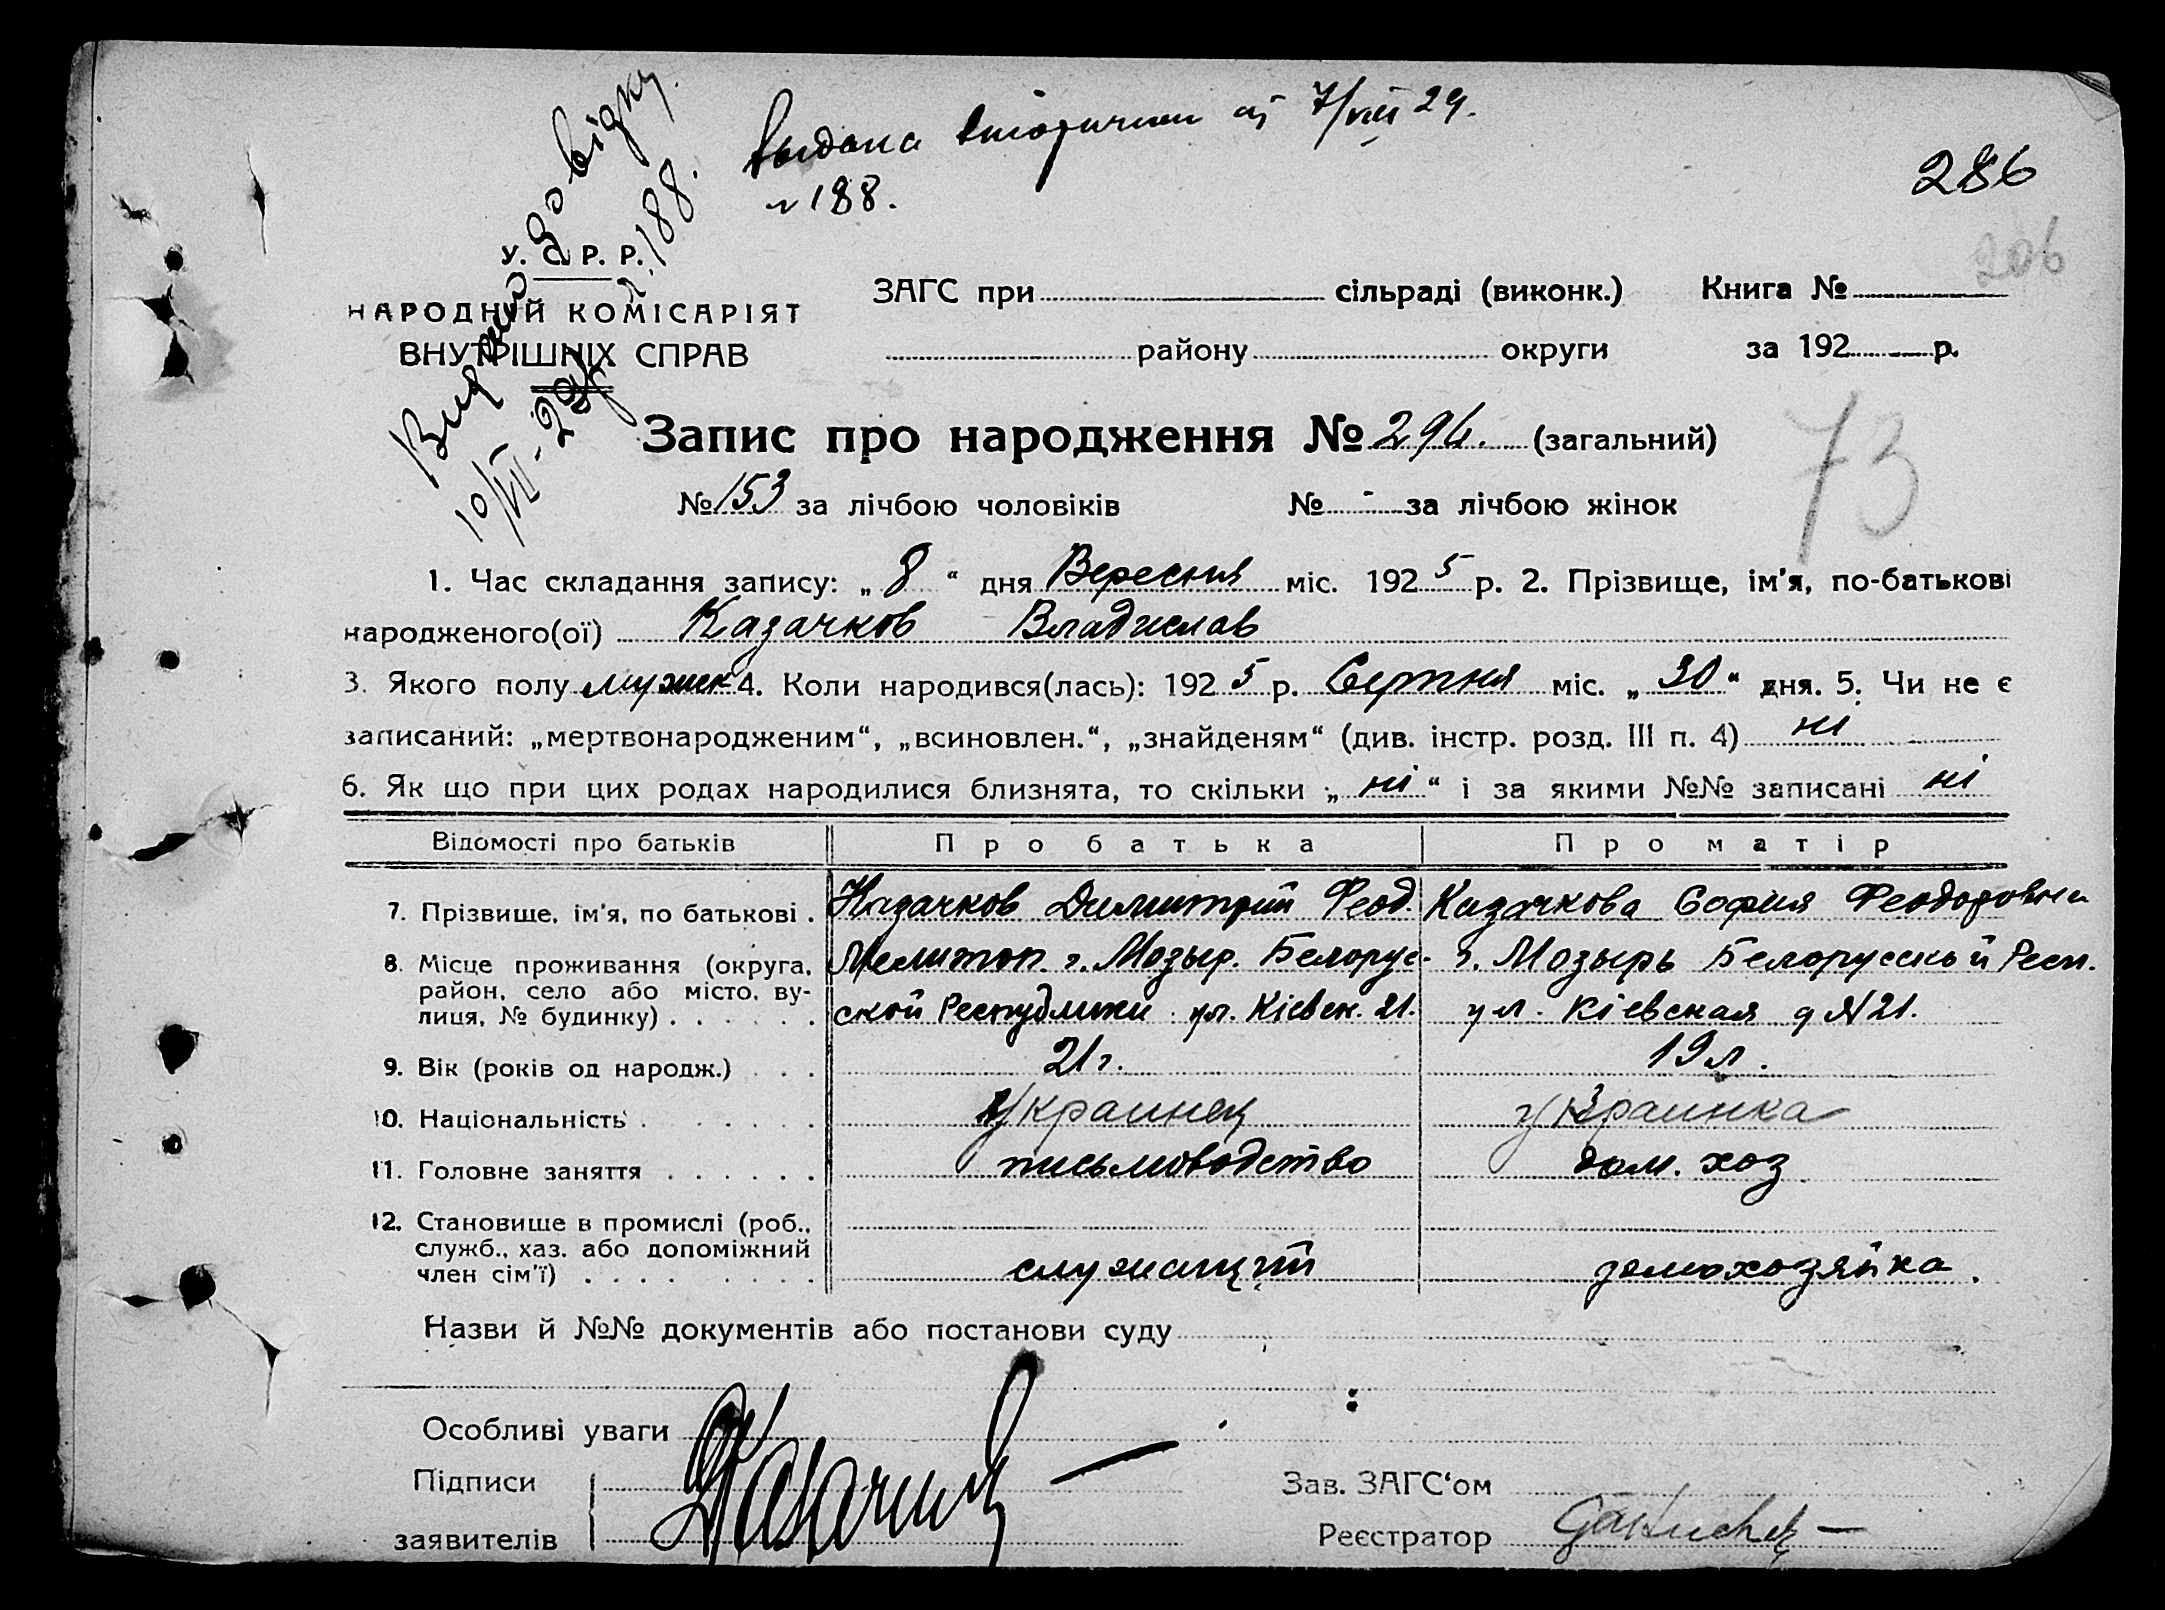 Выдана вторично 7/VIII 29.
№ 188.
286
206
Видано довідку
№ 188.
10/VII-29
У. С. Р. Р.
НАРОДНІЙ КОМІСАРІЯТ
ВНУТРІШНІХ СПРАВ
ЗАГС при сільраді (виконк.) Книга №
району округи за 192 р.
Запис про народження № 296. (загальний)
73
№ 153 за лічбою чоловіків № - за лічбою жінок
1. Час складання запису: „ 8 “ дня Вересня міс. 1925 р. 2. Прізвище, ім'я, по-батькові
народженого(ої) Казачков Владислав
3. Якого полу мужск 4. Коли народився(лась): 1925 р. Серпня міс. „ 30 “ дня. 5. Чи не є
записаний: „мертвонародженим“, „всиновлен.“, „знайденям“ (див. інстр. розд. III п. 4) ні
6. Як що при цих родах народилися близнята, то скільки „ ні “ і за якими №№ записані ні
Відомості про батьків Про батька Про матір
7. Прізвище, ім'я, по батькові . Казачков Димитрий Феод. Казачкова София Феодоровна
8. Місце проживання (округа, район, село або місто, вулиця, № будинку) . . . . . . Мелитоп. г. Мозыр. Белорус-
ской Республики ул. Кіевск. 21.
г. Мозырь Белорусской Респ.
ул. Кіевская д № 21.
9. Вік (років од народж.) . . . 21 г. 19 л.
10. Національність . . . . . . Украинец Украинка
11. Головне заняття . . . . . . письмоводство дом. хоз
12. Становище в промислі (роб., служб., хаз. або допоміжний член сім'ї) . . . . . . . служащий домохозяйка.
Назви й №№ документів або постанови суду
Особливі уваги
Підписи
заявителів
Зав. ЗАГС‘ом
Реєстратор